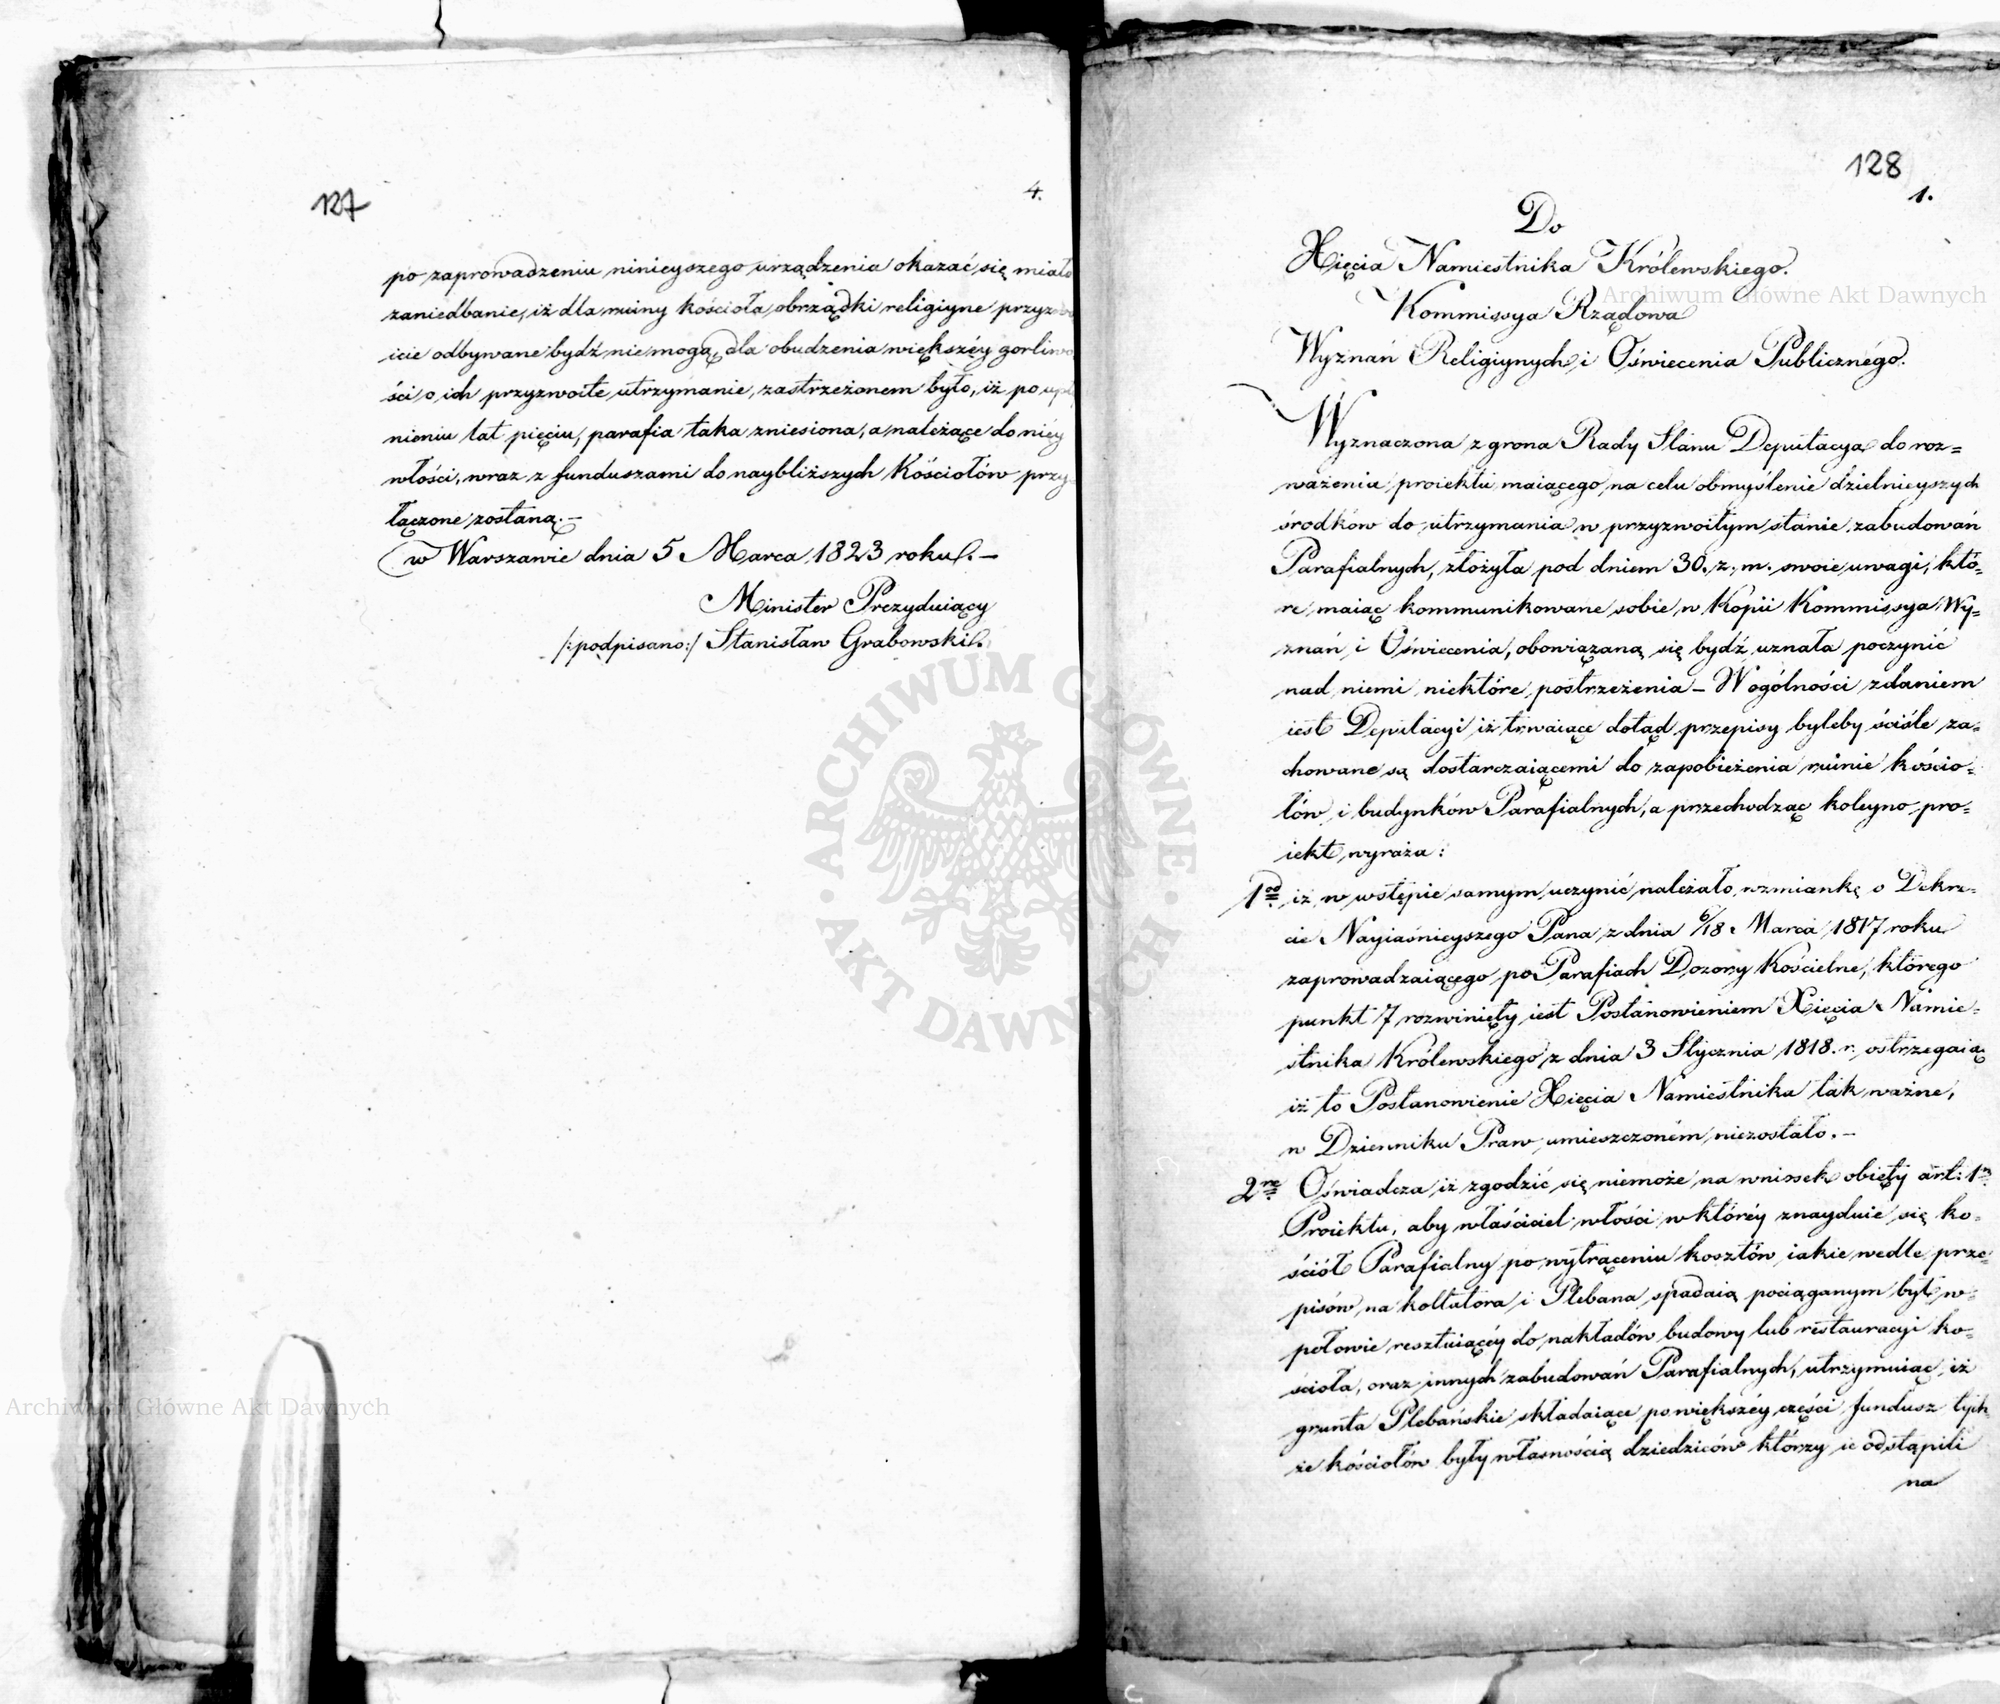 127
4.
po zaprowadzeniu ninieyszego urządzenia okazać się miało
zaniedbanie, iż dla ruiny kościoła, obrządki religiyne przyzwo
icie odbywane bydź nie mogą, dla obudzenia większéy gorliwo
ści o ich przyzwoite utrzymanie, zastrzeżonem było, iż po upł
nieniu lat pięciu, parafia taka zniesiona, a należące do niéy
włości, wraz z funduszami do naybliższych Kościołów przy
łączone zostaną.–
w Warszawie dnia 5 Marca 1823 roku.–
Minister Prezyduiący
/:podpisano:/ Stanisław Grabowski.
128
1.
Do
Xięcia Namiestnika Królewskiego.
Kommissya Rządowa
Wyznań Religiynych i Oświecenia Publicznégo.
Wyznaczona z grona Rady Stanu Deputacya do roz=
ważenia proiektu maiącego na celu obmyślenie dzielnieyszych
środków do utrzymania w przyzwoitym stanie zabudowań
Parafialnych, złożyła pod dniem 30. z. m. swoie uwagi, któ=
re maiąc kommunikowane sobie w Kopii Kommissya Wy=
znań i Oświecenia, obowiązaną się bydź uznała poczynić
nad niemi niektóre postrzeżenia – W ogólności zdaniem
iest Deputacyi iż trwaiące dotąd przepisy byleby ściśle za=
chowane są dostarczaiącemi do zapobieżenia ruinie kościo=
łów i budynków Parafialnych, a przechodząc koleyno pro=
iekt wyraża:
1od iż w wstępie samym uczynić należało wzmiankę o Dekre=
cie Nayiaśnieyszego Pana z dnia 6/18 Marca 1817 roku
zaprowadzaiącego po Parafiach Dozory Kościelne, którego
punkt 7 rozwinięty iest Postanowieniem Xięcia Namie=
stnika Królewskiego z dnia 3 Stycznia 1818. r. ostrzegaiąc
iż to Postanowienie Xięcia Namiestnika tak ważne,
w Dzienniku Praw umieszczoném niezostało.–
2re Oświadcza iż zgodzić się niemoże na wniosek obięty art: 1m
Proiektu, aby właściciel włości w któréy znayduie się ko=
ściół Parafialny po wytrąceniu kosztów iakie wedle prze=
pisów na kollatora i Plebana spadaią pociąganym był w=
połowie resztuiącéy do nakładów budowy lub restauracyi ko=
ścioła, oraz innych zabudowań Parafialnych, utrzymuiąc, iż
grunta Plebańskie składaiące po większéy części fundusz tych
że kościołów były własnością dziedziców którzy ie odstąpili
na
Archiwum Główne Akt Dawnych
Archiwum Główne Akt Dawnych
ARCHIWUM GŁÓWNE · AKT DAWNYCH ·